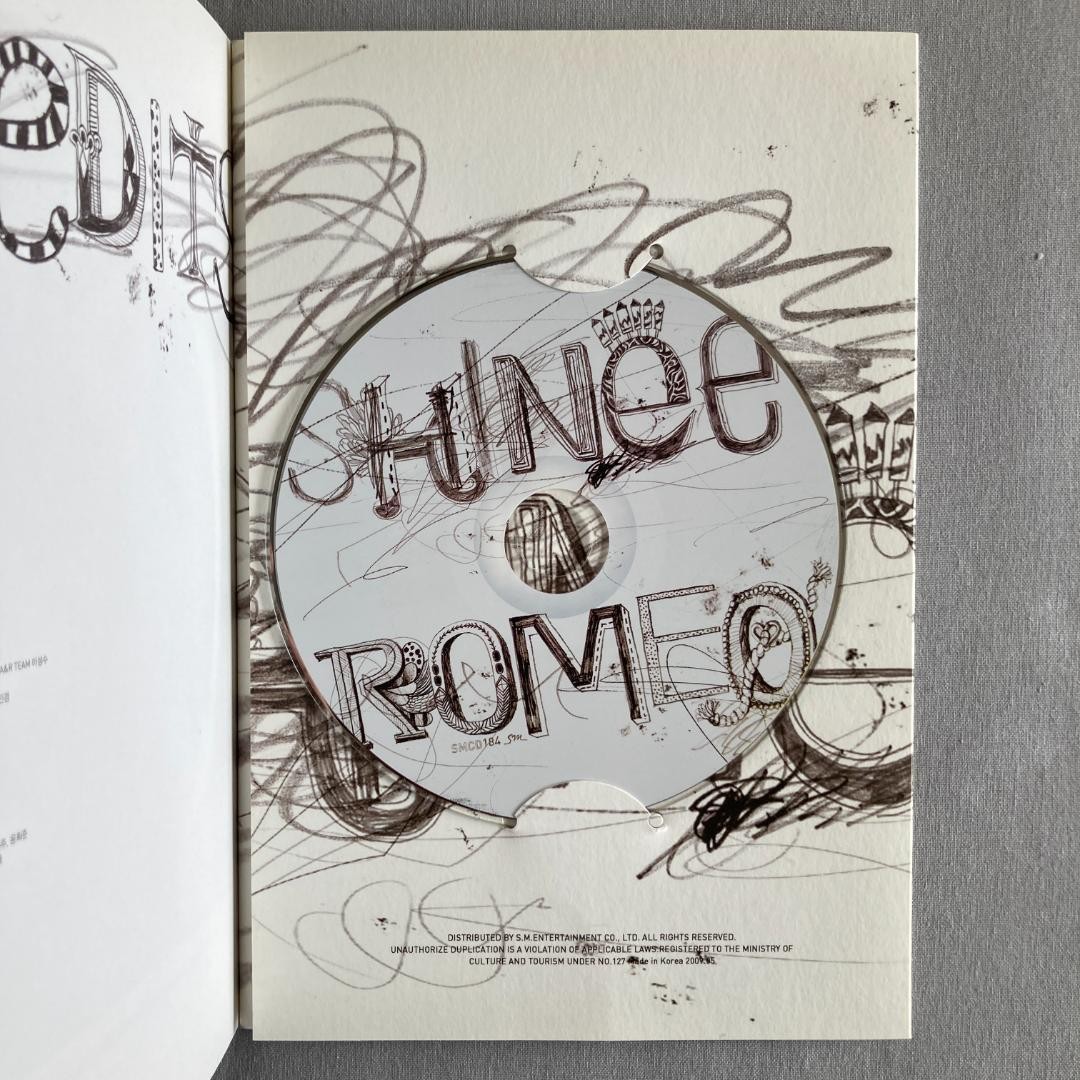 CDITS
A&R TEAM 이성수
SHINee
ROMEO
SMCD184 SM
DISTRIBUTED BY S.M.ENTERTAINMENT CO., LTD. ALL RIGHTS RESERVED.
UNAUTHORIZE DUPLICATION IS A VIOLATION OF APPLICABLE LAWS.REGISTERED TO THE MINISTRY OF
CULTURE AND TOURISM UNDER NO.127 Made in Korea 2009.05.